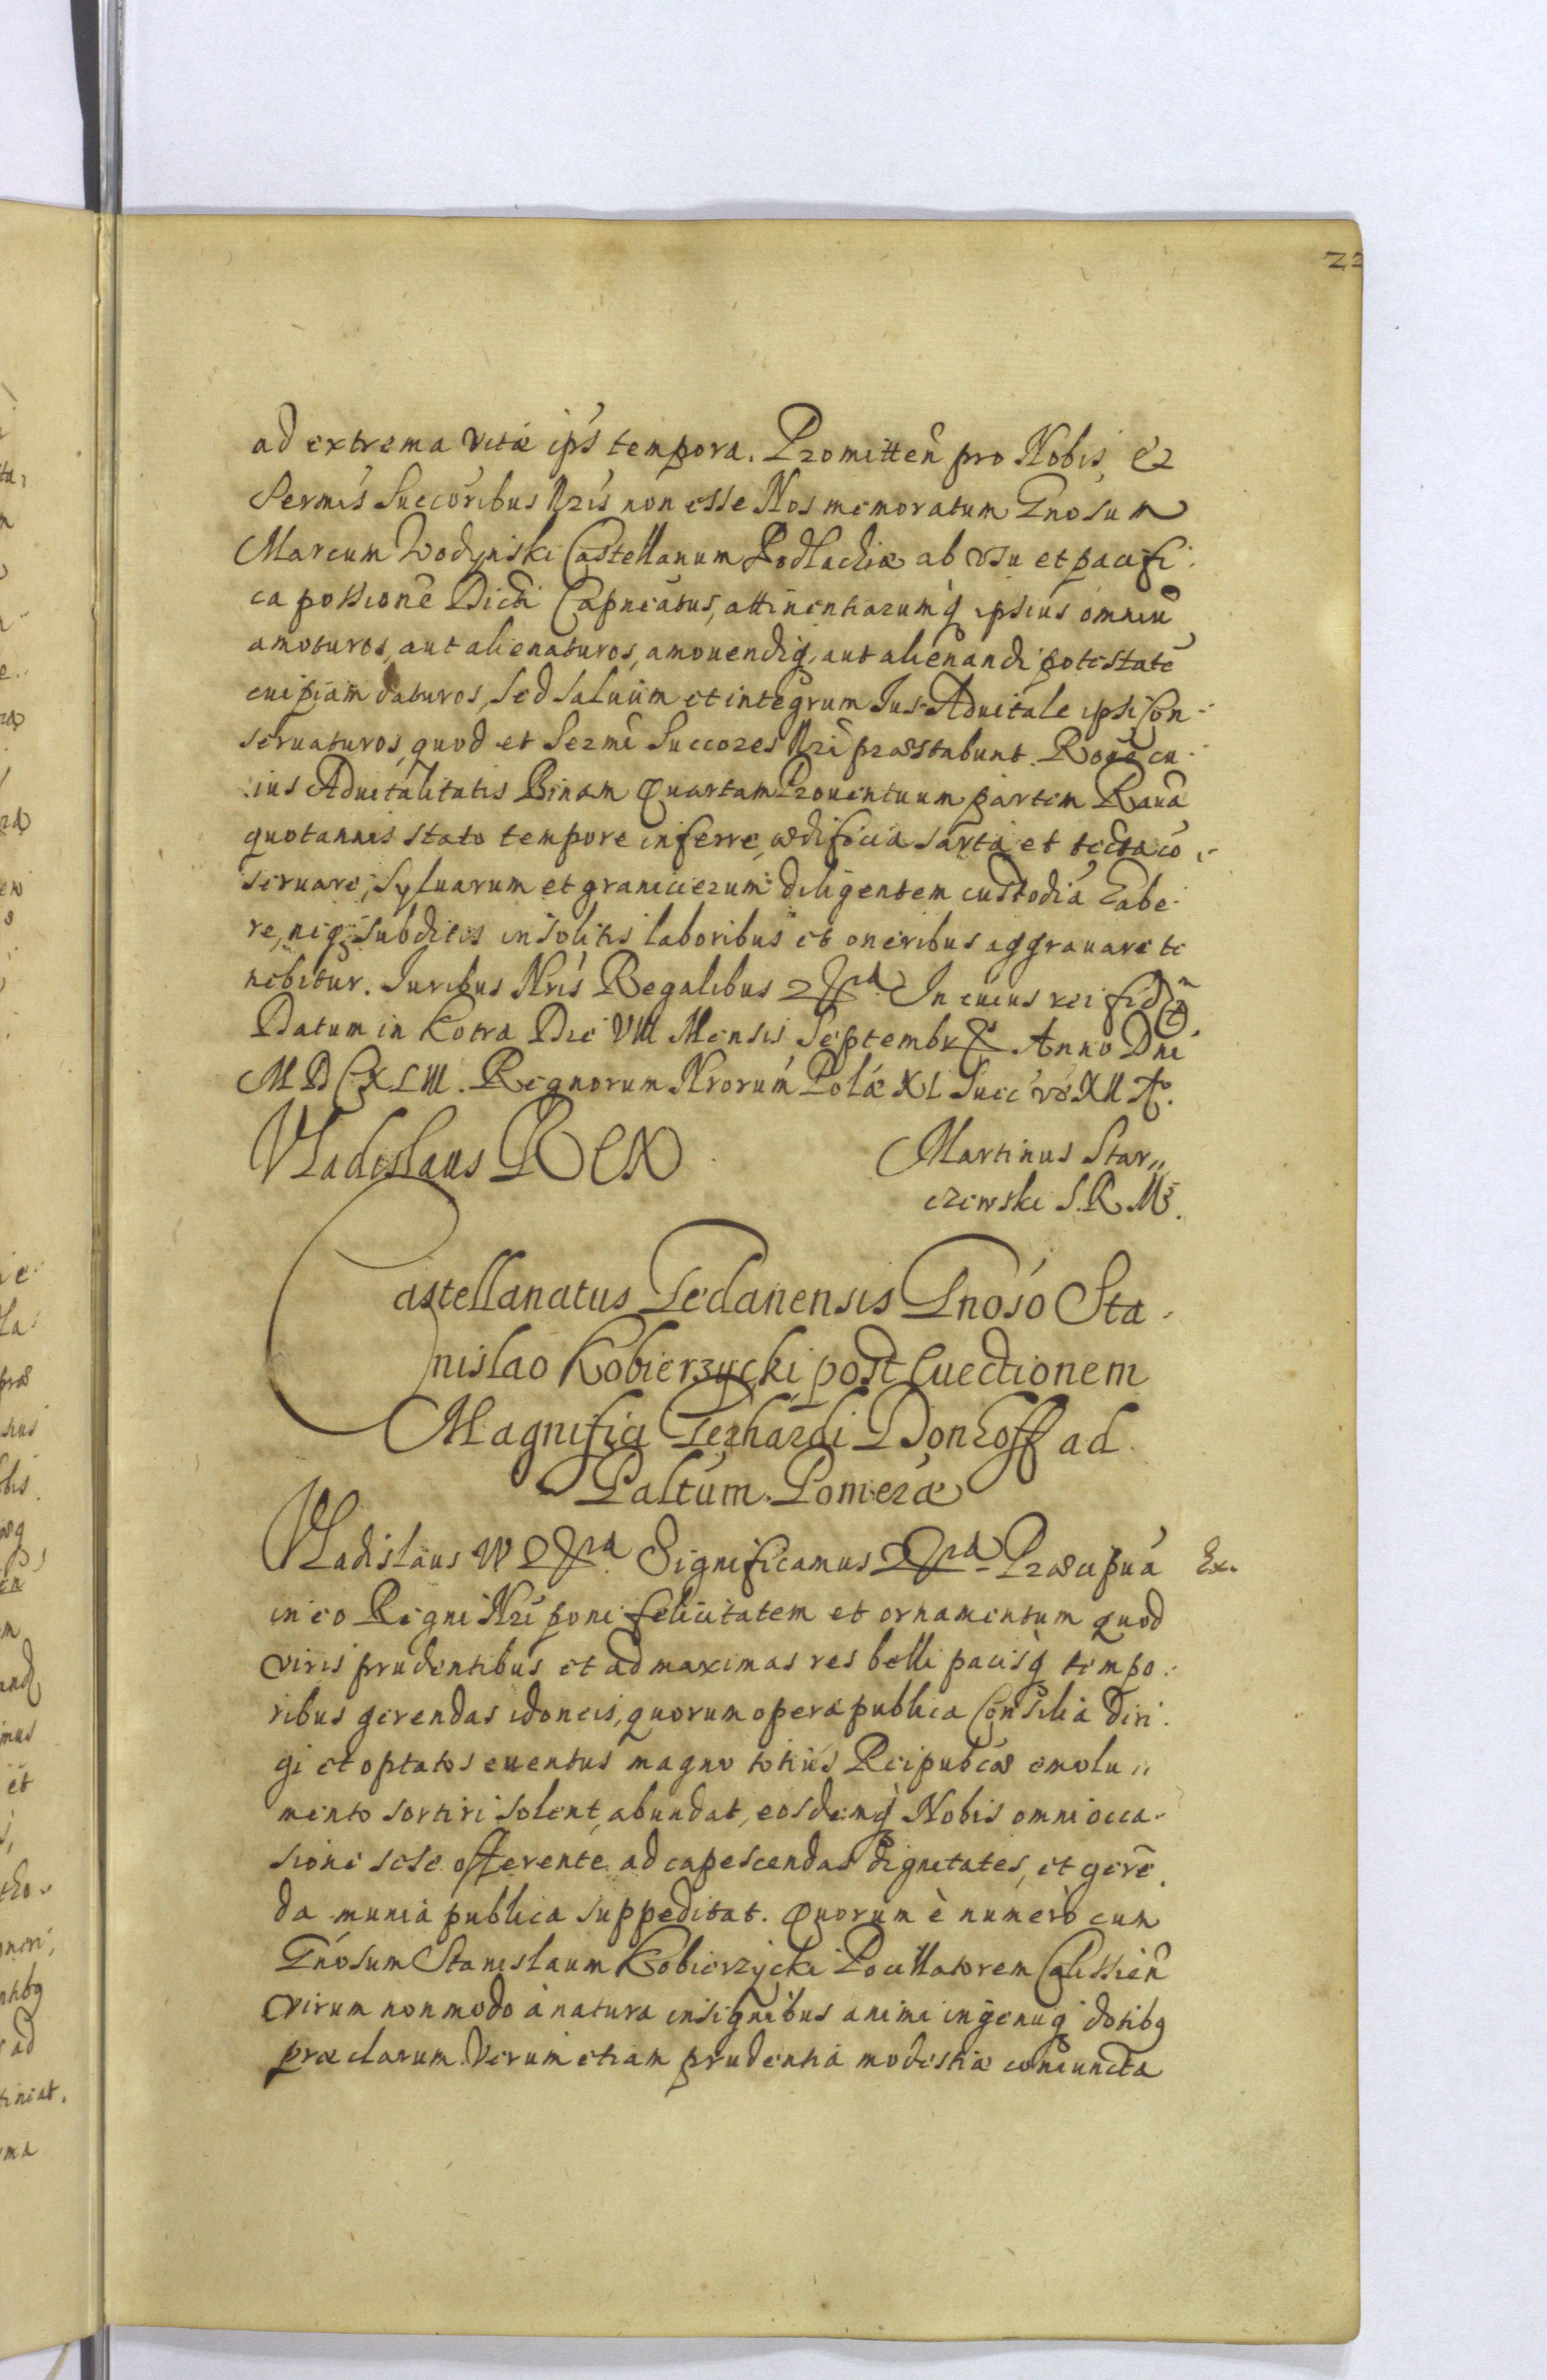 22
ad extrema vitæ ips tempora. Promitteñ pro Nobis et
Sermis Succoribus Nris non esse Nos memoratum Gnosum
Marcum Wodynski Castellanum Podlachiæ ab vsu et pacifi:
ca possione Dicti Capneatus, attinentiarumq ipsius omniũ
amoturos, aut alienaturos, amouendiq, aut alienandi potestatẽ
cuipiam daturos, sed saluum et integrum Ius Aduitale ipsi Con-
seruaturos, quod et Sermi Succores Nri præstabunt. Rone cu-
ius Aduitalitatis Binam Quartam Prouentuum partem Rauã
quotannis stato tempore inferre, ædificia sarta et tecta cõ-
seruare, syluarum et granicierum diligentem custodiã habe-
re, neq subditos insolitis laboribus et oneribus aggrauare te
nebitur. Iuribus Nris Regalibus In cuius rei fid
Datum in Kotra Die VIII Mensis Septembr Anno Dni
MDCXLIII. Regnorum Nrorum Polæ XI Suec vo XII Ao.
Vladislaus Rex
Martinus Star,,
czewski S. R. Ms.
Castellanatus Gedanensis Gnoso Sta-
nislao Kobierzycki post Euectionem
Magnifici Gerhardi Donhoff ad
Paltum Pomeræ
Vladislaus IV Significamus Præcipuã
Ex.
in eo Regni Nri poni felicitatem et ornamentum quod
viris prudentibus et ad maximas res belli pacisq tempo-
ribus gerendas idoneis, quorum opera publica Consilia diri-
gi et optatos euentus magno totius Reipubcæ emolu,,
mento sortiri solent, abundat, eosdemq Nobis omni occa-
sione sese offerente ad capescendas dignitates, et gerẽ
da munia publica suppeditat. Quorum è numero cum
Gnosum Stanislaum Kobierzycki Pocillatorem Calissieñ
virum non modo à natura insignibus animi ingeniiq dotibq
præclarum. Verum etiam prudentia modestiæ coniuncta